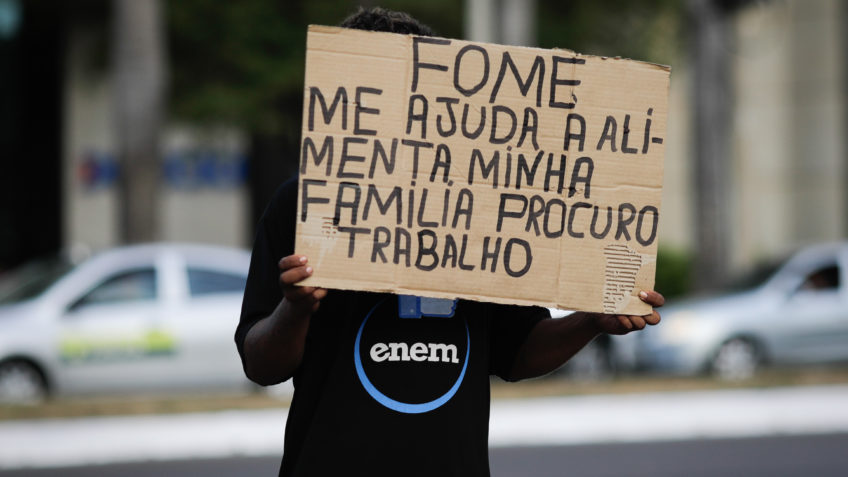 FOME
ME AJUDA A ALI-
MENTA MINHA
FAMÍLIA PROCURO
TRABALHO
enem